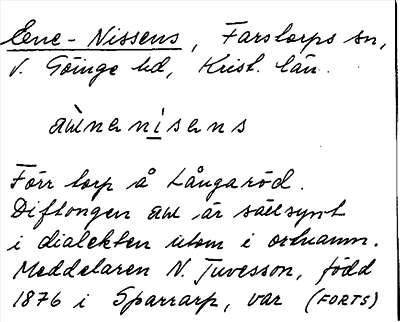 Ene-Nissens, Farstorps sn,
V. Göinge hd, Krist. län.
nenisens
Förr torp å Långaröd.
Diftongen är sällsynt
i dialekten utom i ortnamn.
Meddelaren N. Tuvesson, född
1876 i Sparrarp, var (FORTS)